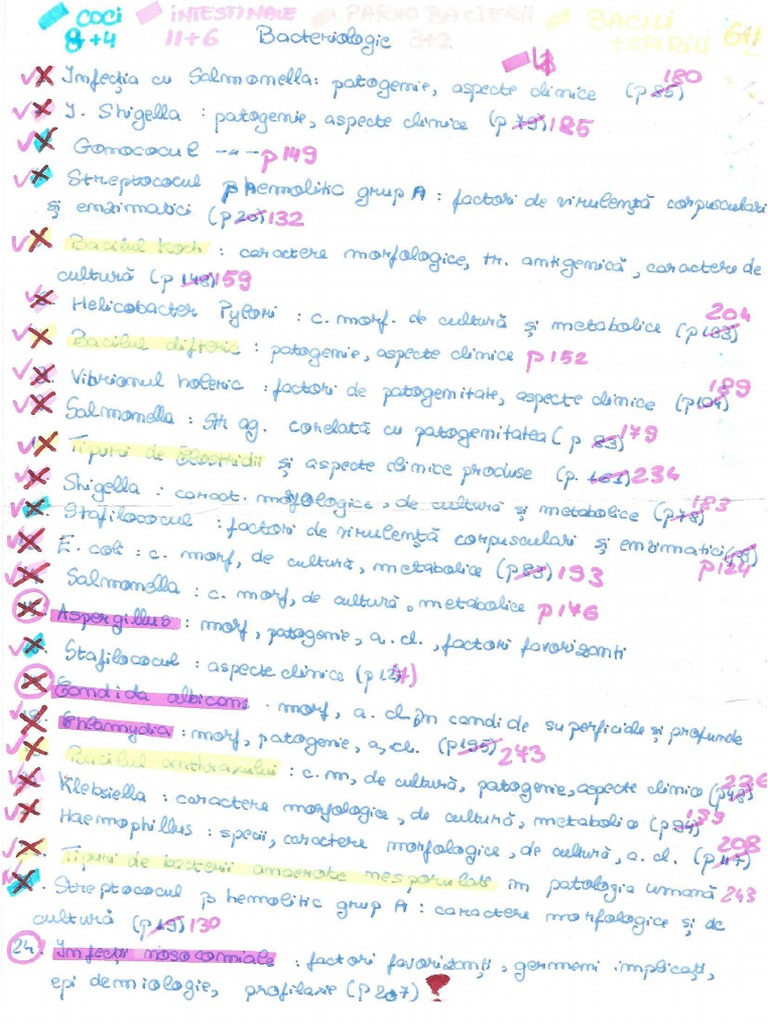 COCI INTESTINALE PARVO BACTERII BACILI
8+4 11+6 Bacteriologie 3+2 +SPIRILI 6+1
Infecția cu Salmonella: patogenie, aspecte clinice (p 85) 180
I. Shigella : patogenie, aspecte clinice (p 79) 185
Gonococul -"- p 149
Streptococul β hemolitic grup A : factori de virulență corpusculari
și enzimatici (p 20) 132
Bacilul Koch : caractere morfologice, str. antigenică, caractere de
cultură (p 148) 159
Helicobacter Pylori : c. morf. de cultură și metabolice (p 183) 204
Bacilul difteric : patogenie, aspecte clinice p 152
Vibrionul holeric : factori de patogenitate, aspecte clinice (p 104) 189
Salmonella : str ag. corelată cu patogenitatea (p 83) 179
Tipuri de Clostridii și aspecte clinice produse (p. 161) 234
Shigella : caract. morfologice, de cultură și metabolice (p 78) 183
Stafilococul : factori de virulență corpusculari și enzimatici
p 124
E. coli : c. morf, de cultură, metabolice (p 93) 193
Salmonella : c. morf, de cultură, metabolice p 176
Aspergillus : morf, patogenie, a. cl., factori favorizanti
Stafilococul : aspecte clinice (p 127)
Candida albicans : morf, a. cl. în candide superficiale și profunde
Chlamydia : morf, patogenie, a, cl. (p 195) 273
Bacilul anthraxului : c. m, de cultură, patogenie, aspecte clinice (p 48)
Klebsiella : caractere morfologice, de cultură, metabolice (p 94) 199
Haemophillus : specii, caractere morfologice, de cultură, a. cl. (p 47) 208
Tipuri de bacterii anaerobe nesporulate în patologia umană 243
Streptococul β hemolitic grup A : caractere morfologice și de
cultură (p 19) 130
24. Infecții nosocomiale : factori favorizanți, germeni implicați,
epidemiologie, profilaxie (p 207)